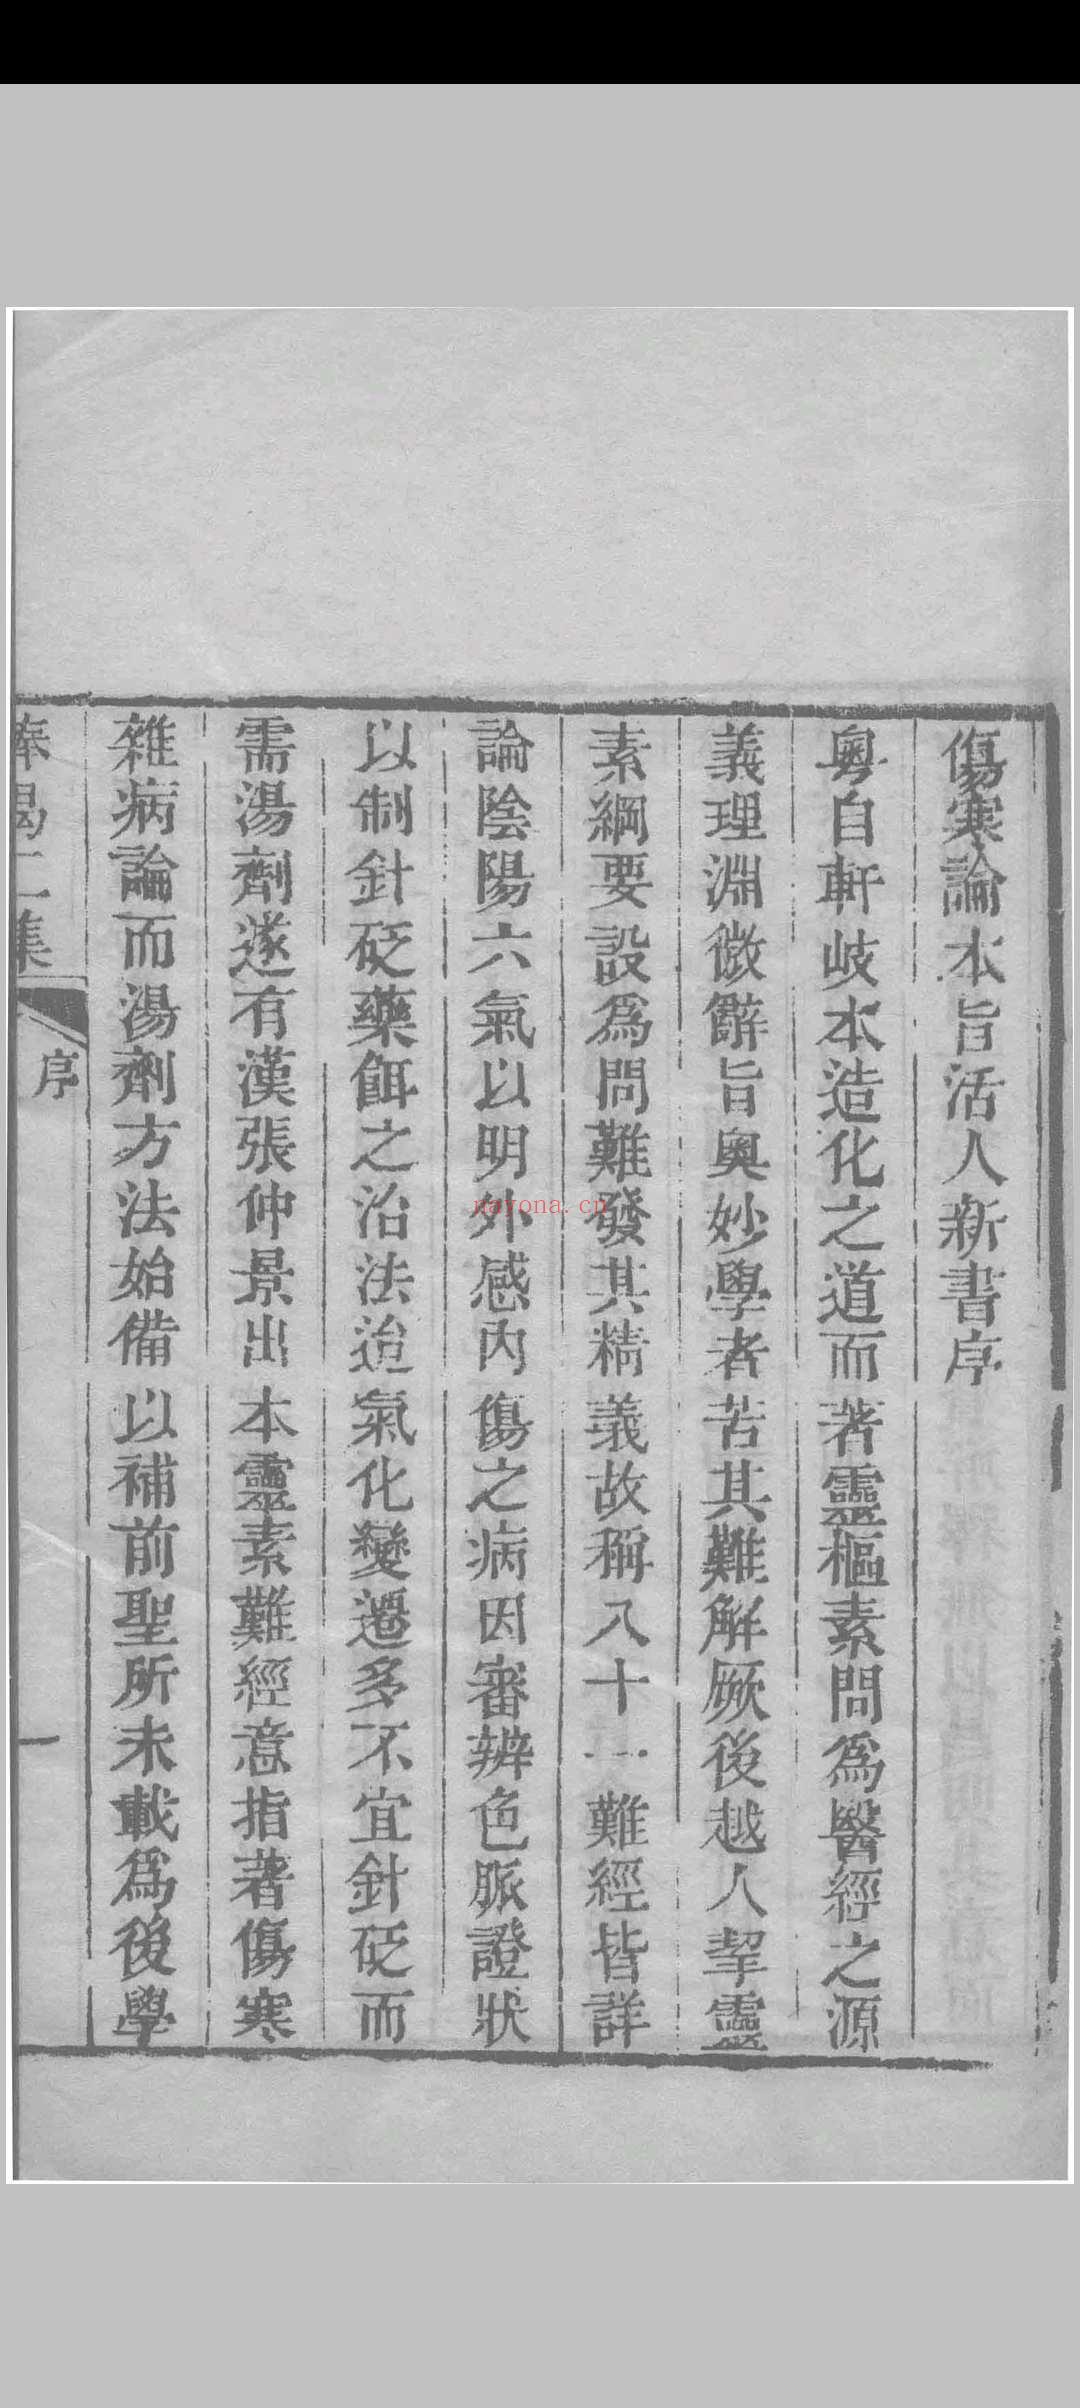 傷寒論本旨活人新書序
粵自軒岐本造化之道而著靈樞素問爲醫經之源
義理淵微辭旨奧妙學者苦其難解厥後越人挈靈
素綱要設爲問難發其精義故稱八十一難經皆詳
論陰陽六氣以明外感內傷之病因審辨色脈證狀
以制針砭藥餌之治法迨氣化變遷多不宜針砭而
需湯劑遂有漢張仲景出本靈素難經意指著傷寒
雜病論而湯劑方法始備以補前聖所未載爲後學
二集
序
一
nayona.cn